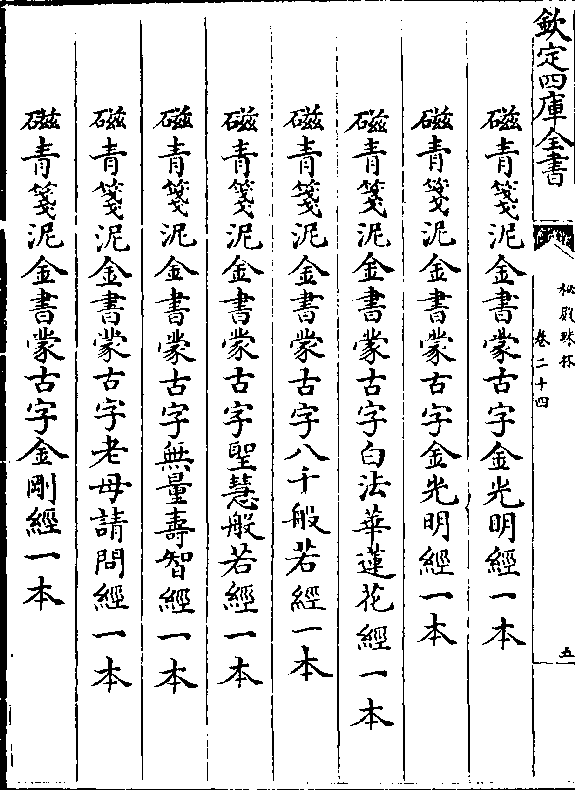 欽定四庫全書
秘殿珠林
卷二十四
五
磁青箋泥金書蒙古字金光明經一本
磁青箋泥金書蒙古字金光明經一本
磁青箋泥金書蒙古字白法華蓮花經一本
磁青箋泥金書蒙古字八千般若經一本
磁青箋泥金書蒙古字聖慧般若經一本
磁青箋泥金書蒙古字無量壽智經一本
磁青箋泥金書蒙古字老母請問經一本
磁青箋泥金書蒙古字金剛經一本